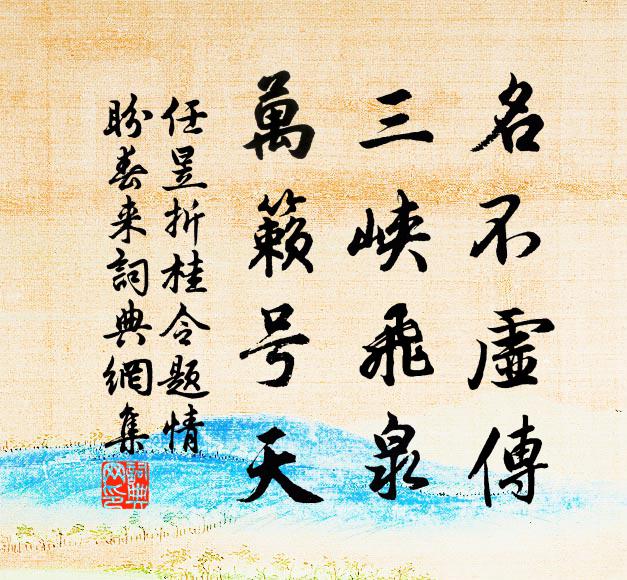 名不虛傳
三峽飛泉
萬籟号天
任昱折桂令题情
盼春来詞典網集